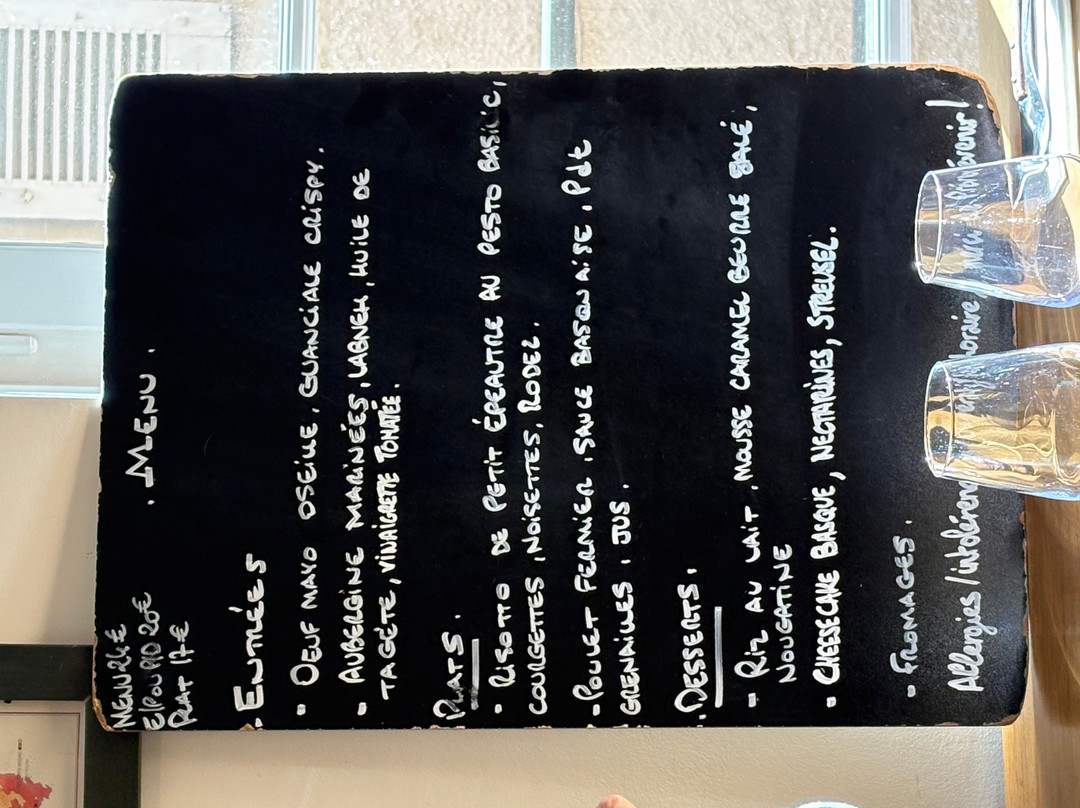 . MENU .
MENU 24€
E/P ou P/D 20€
PLAT 17€
. ENTRÉES
- OEUF MAYO OSEILLE, GUANCIALE CRISPY.
- AUBERGINE MARINÉES, LABNEH, HUILE DE
TAGÈTE, VINAIGRETTE TOMATÉE.
PLATS.
- RISOTTO DE PETIT ÉPEAUTRE AU PESTO BASILIC,
COURGETTES, NOISETTES, RODEZ.
- POULET FERMIER, SAUCE BASQUAISE, Pdt
GRENAILLES, JUS.
. DESSERTS.
- RIZ AU LAIT, MOUSSE CARAMEL BEURRE SALÉ,
NOUGATINE
- CHEESECAKE BASQUE, NECTARINES, STREUSEL.
- FROMAGES.
Allergies / intolérence horaire merci prévenir!